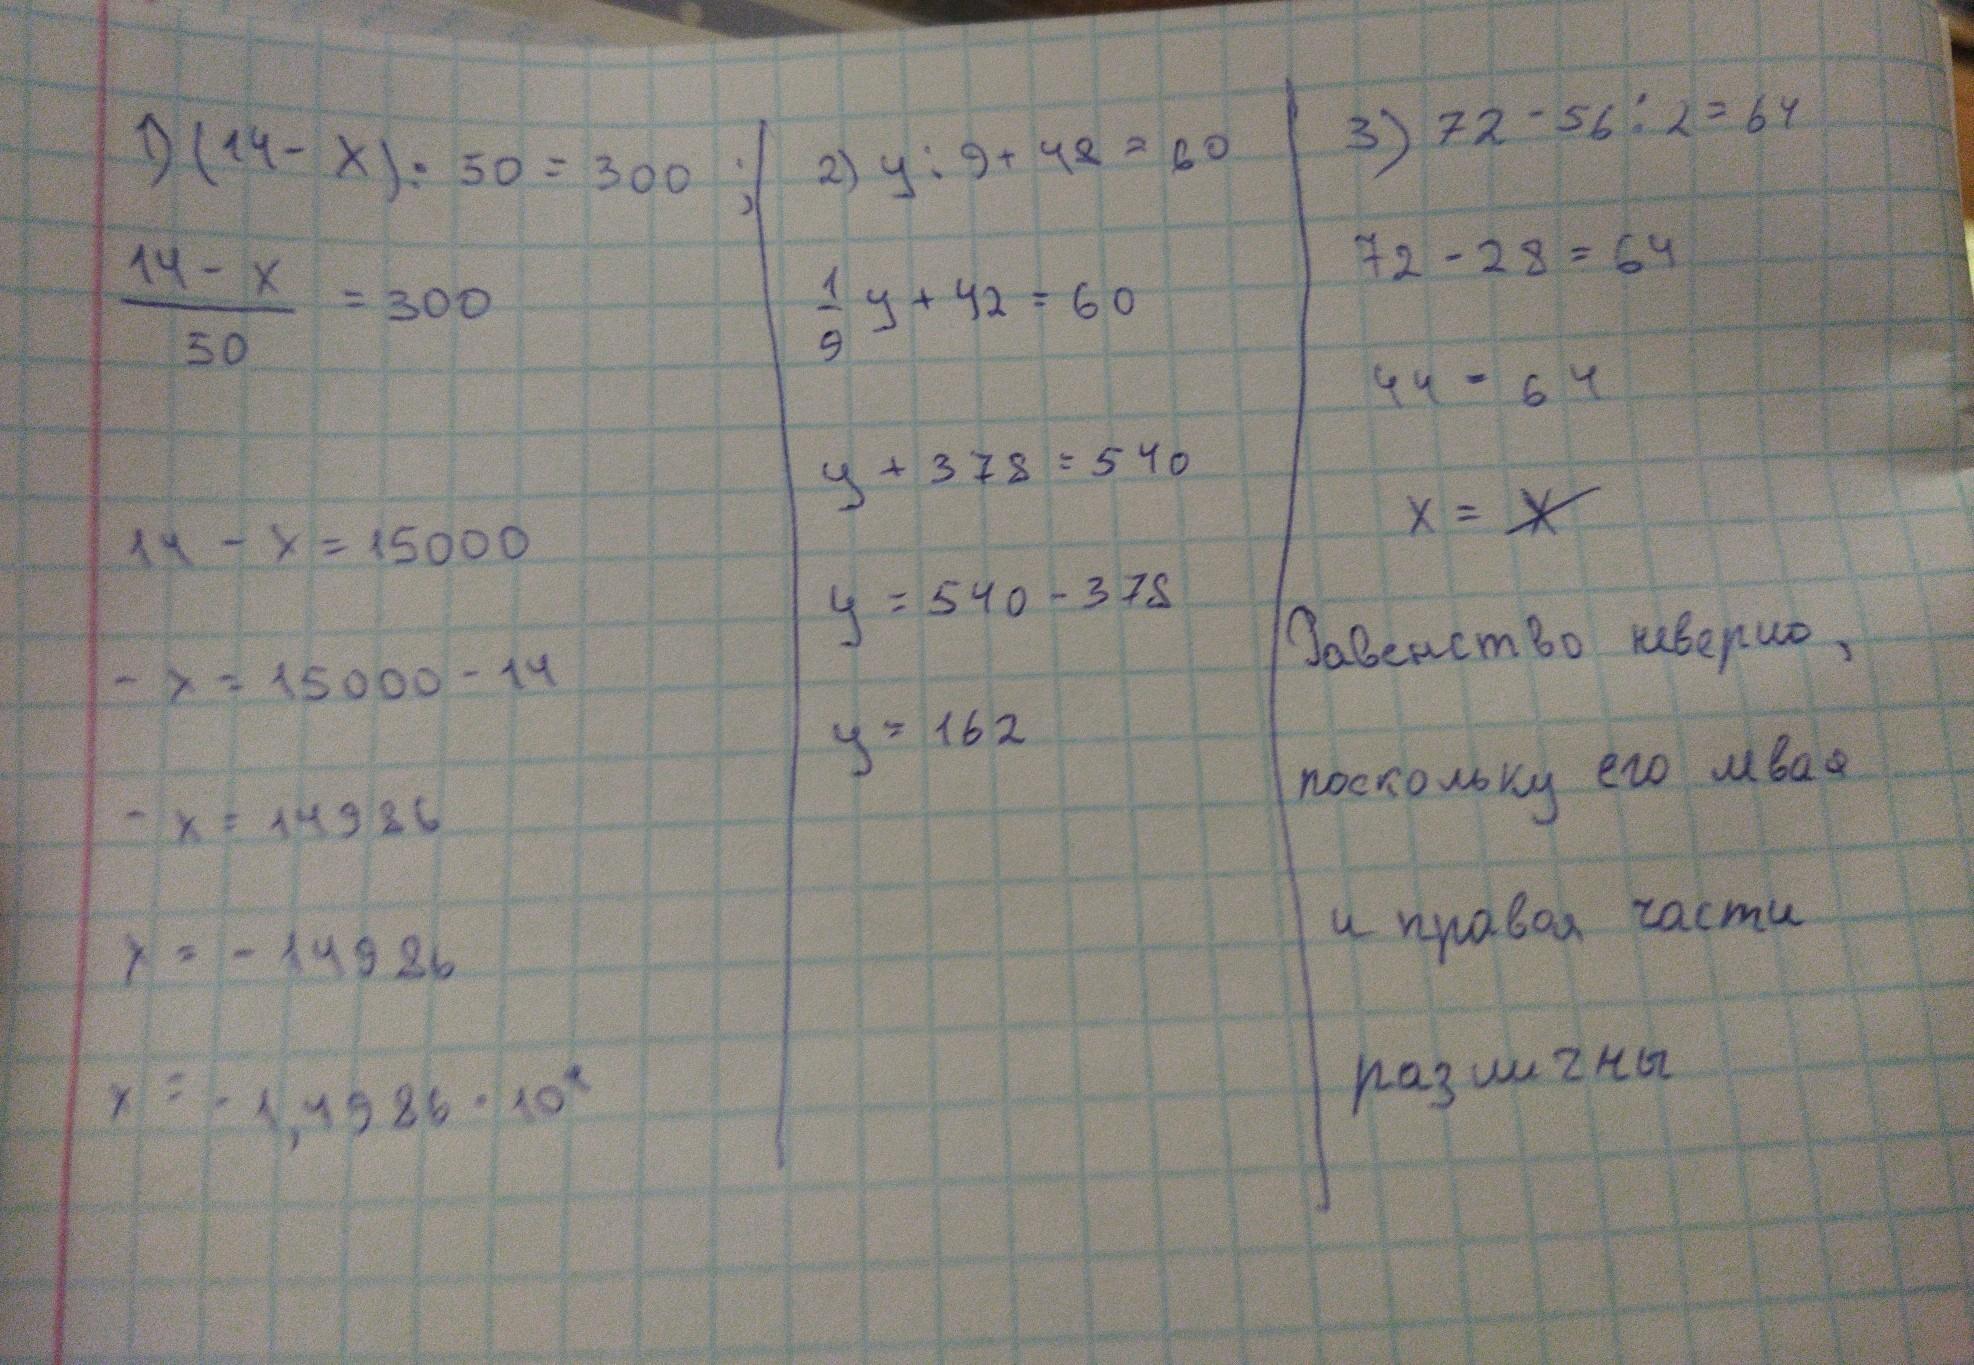 1) (14 - x) : 50 = 300 ;
14 - x
50
= 300
14 - x = 15000
- x = 15000 - 14
- x = 14986
x = - 14986
x = - 1,4986 · 10⁴
2) y : 9 + 42 = 60
1
9
y + 42 = 60
y + 378 = 540
y = 540 - 378
y = 162
3) 72 - 56 : 2 = 64
72 - 28 = 64
44 = 64
x = x
Равенство неверно,
поскольку его левая
и правая части
различны